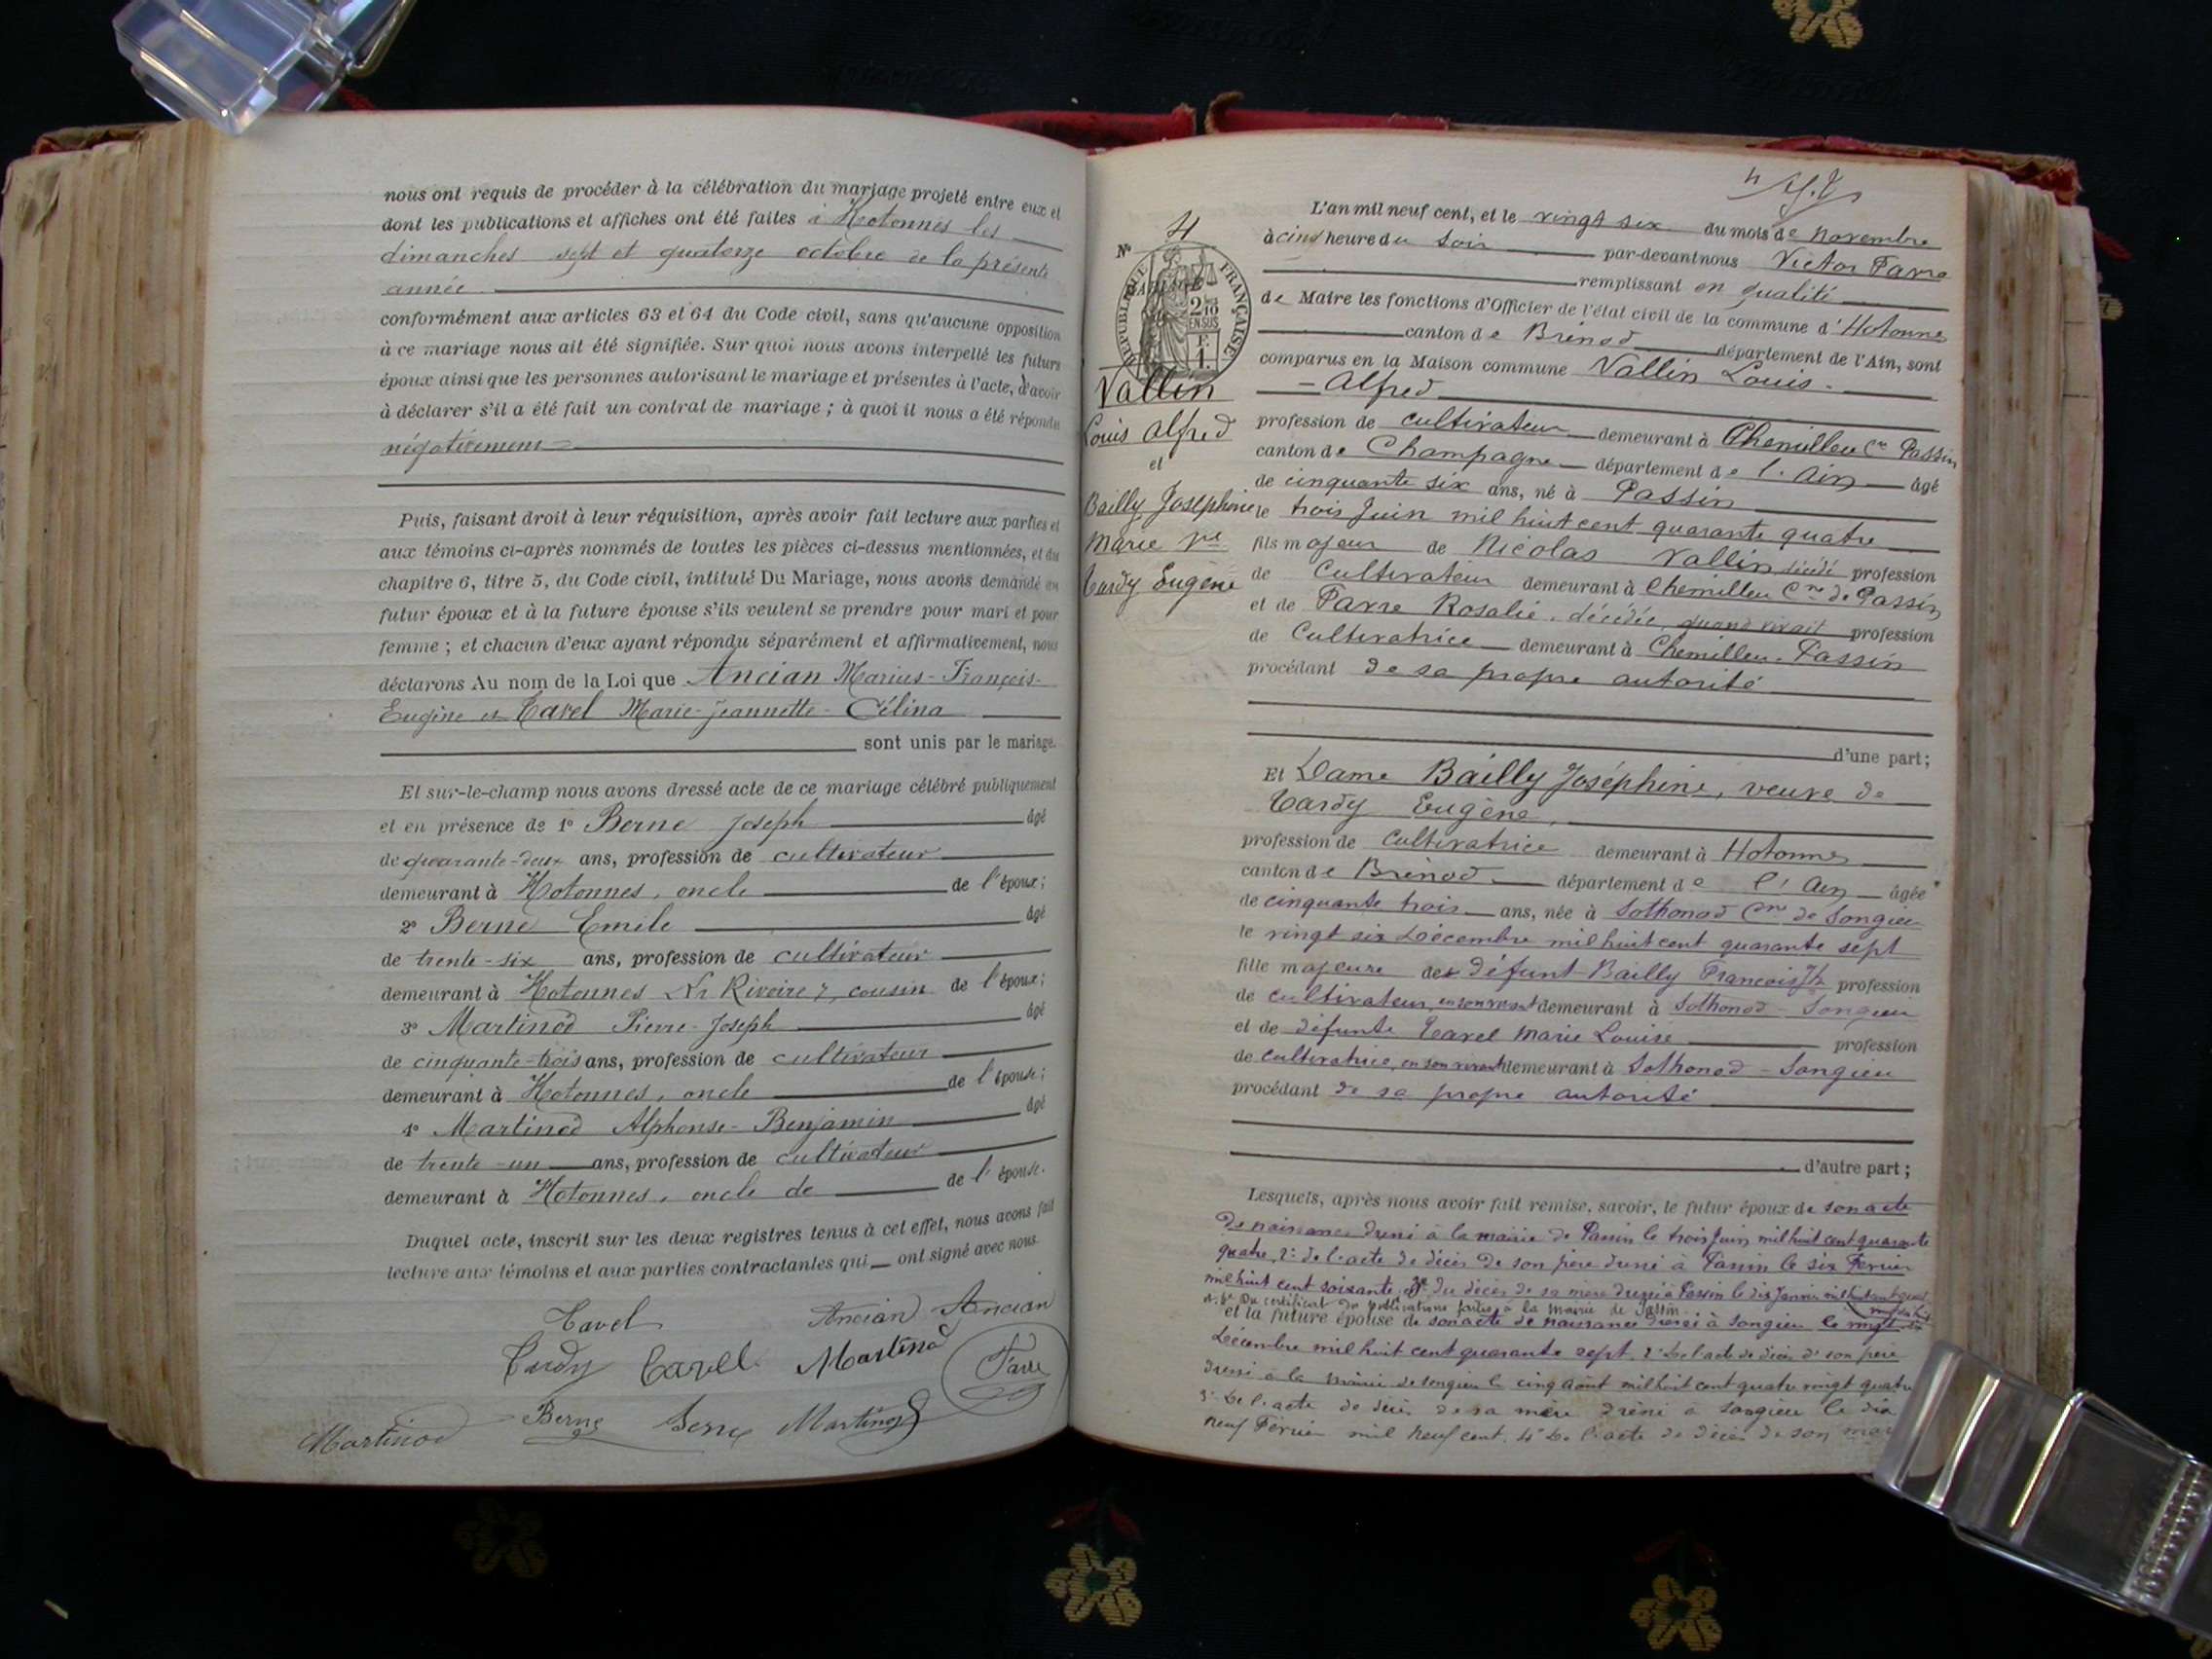 nous ont requis de procéder à la célébration du mariage projeté entre eux et
dont les publications et affiches ont été faites à Hotonnes les
dimanches sept et quatorze octobre de la présente
année
conformément aux articles 63 et 64 du Code civil, sans qu'aucune opposition
à ce mariage nous ait été signifiée. Sur quoi nous avons interpellé les futurs
époux ainsi que les personnes autorisant le mariage et présentes à l'acte, d'avoir
à déclarer s'il a été fait un contrat de mariage ; à quoi il nous a été répondu
négativement
Puis, faisant droit à leur réquisition, après avoir fait lecture aux parties et
aux témoins ci-après nommés de toutes les pièces ci-dessus mentionnées, et du
chapitre 6, titre 5, du Code civil, intitulé Du Mariage, nous avons demandé au
futur époux et à la future épouse s'ils veulent se prendre pour mari et pour
femme ; et chacun d'eux ayant répondu séparément et affirmativement, nous
déclarons Au nom de la Loi que Ancian Marius-François-
Eugène et Tavel Marie-Jeannette-Célina
sont unis par le mariage.
Et sur-le-champ nous avons dressé acte de ce mariage célébré publiquement
et en présence de 1° Berne Joseph âgé
de quarante-deux ans, profession de cultivateur
demeurant à Hotonnes, oncle de l'époux ;
2° Berne Emile âgé
de trente-six ans, profession de cultivateur
demeurant à Hotonnes Rivoire, cousin de l'époux ;
3° Martinod Pierre-Joseph âgé
de cinquante-trois ans, profession de cultivateur
demeurant à Hotonnes, oncle de l'épouse ;
4° Martinod Alphonse-Benjamin âgé
de trente-un ans, profession de cultivateur
demeurant à Hotonnes, oncle de de l'épouse.
Duquel acte, inscrit sur les deux registres tenus à cet effet, nous avons fait
lecture aux témoins et aux parties contractantes qui ont signé avec nous.
Tavel Ancian Ancian
Tardy Tavel Martinod Favre
Martinod Berne Berne Martinod
4
N° 4
RÉPUBLIQUE FRANÇAISE
2/10
EN SUS
F.
1.
Vallin
Louis Alfred
et
Bailly Josephine
Marie Vve
Tardy Eugène
L'an mil neuf cent, et le vingt six du mois de Novembre
à cinq heure du soir par-devant nous Victor Favre
remplissant en qualité
de Maire les fonctions d'Officier de l'état civil de la commune d'Hotonnes
canton de Brénod département de l'Ain, sont
comparus en la Maison commune Vallin Louis-
-Alfred
profession de cultivateur demeurant à Chemilleu Cne Passin
canton de Champagne département de l'Ain âgé
de cinquante six ans, né à Passin
le trois Juin mil huit cent quarante quatre
fils majeur de Nicolas Vallin décédé profession
de Cultivateur demeurant à Chemilleu Cne de Passin
et de Favre Rosalie, décédée, quand vivait profession
de Cultivatrice demeurant à Chemilleu-Passin
procédant de sa propre autorité
d'une part ;
Et Dame Bailly Joséphine, veuve de
Tardy Eugène,
profession de Cultivatrice demeurant à Hotonnes
canton de Brénod département de l'Ain âgée
de cinquante trois ans, née à Sothonod Cne de Songieu
le vingt six Décembre mil huit cent quarante sept
fille majeure de défunt Bailly François Jh profession
de cultivateur, en son vivant demeurant à Sothonod-Songieu
et de défunte Tavel Marie Louise profession
de cultivatrice, en son vivant demeurant à Sothonod-Songieu
procédant de sa propre autorité
d'autre part ;
Lesquels, après nous avoir fait remise, savoir, le futur époux de son acte
de naissance dressé à la mairie de Passin le trois Juin mil huit cent quarante
quatre, 2° de l'acte de décès de son père dressé à Passin le six Février
mil huit cent soixante, 3° du décès de sa mère dressé à Passin le dix Janvier mil huit cent
4° Du certificat de publications faites à la mairie de Passin
et la future épouse de son acte de naissance dressé à Songieu le vingt six
Décembre mil huit cent quarante sept. 2° De l'acte de décès de son père
dressé à la mairie de Songieu le cinq août mil huit cent quatre vingt quatre
3° De l'acte de décès de sa mère dressé à Songieu le dix
neuf Février mil neuf cent. 4° De l'acte de décès de son mari